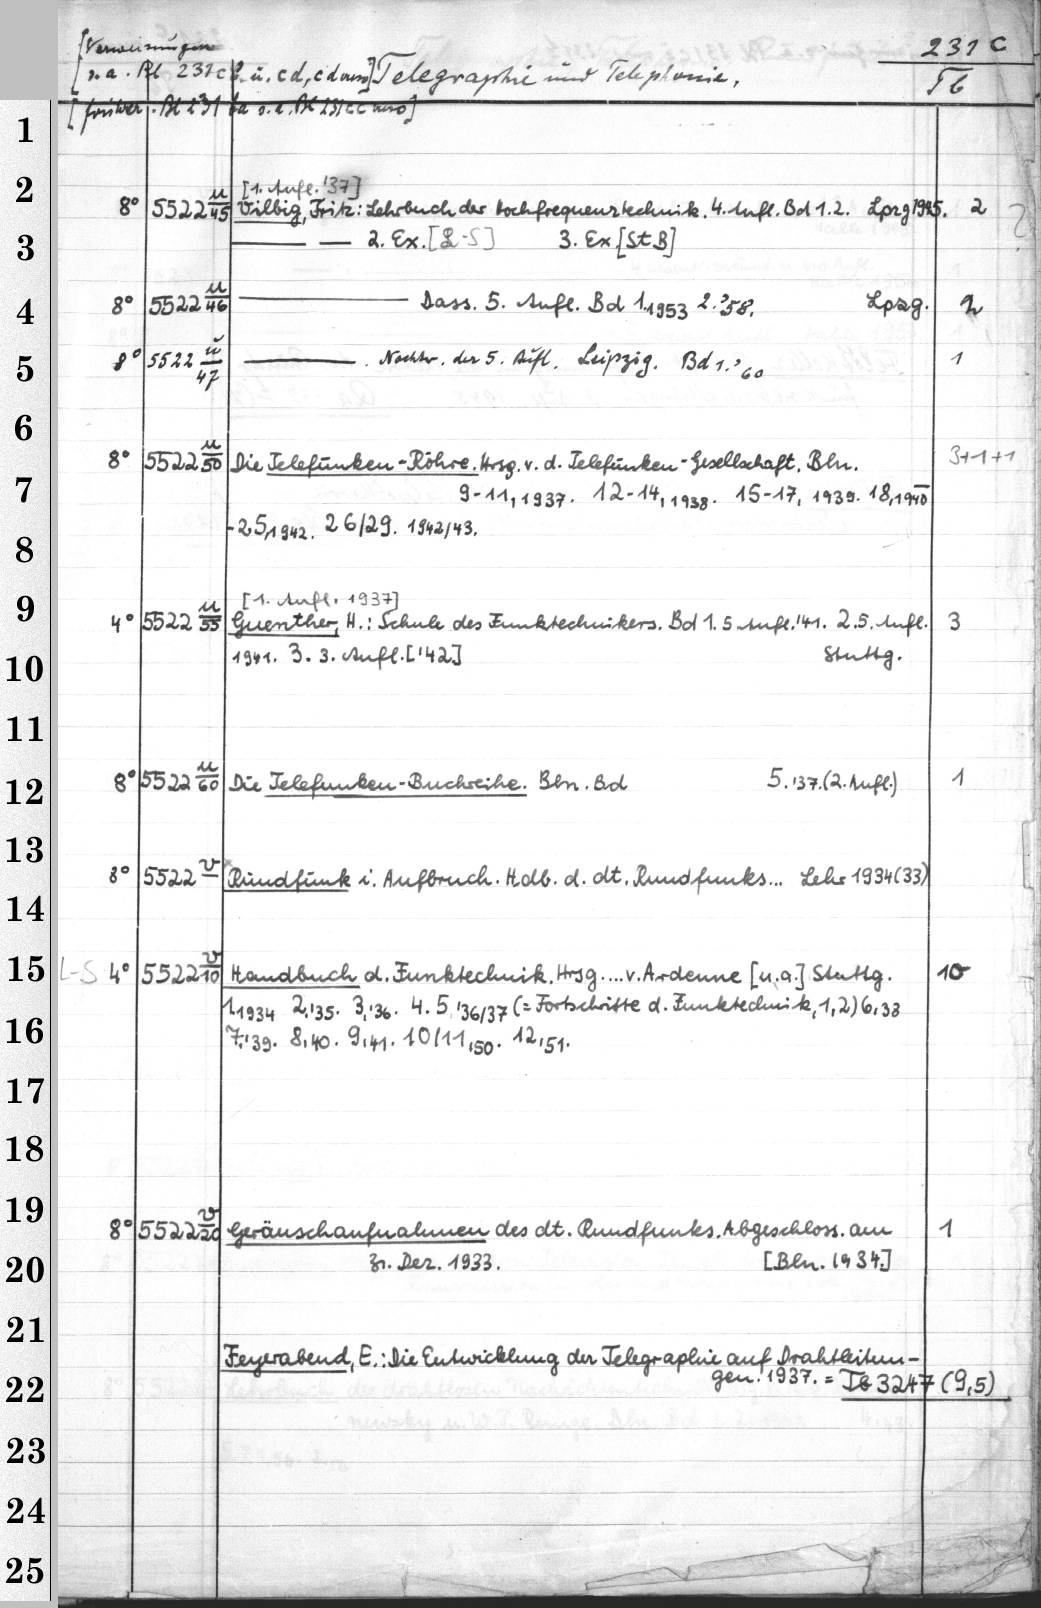 [Verweisungen 231 c
s. a. Bl. 231 c b. u. cd, cd verso] Telegraphie und Telephonie. Tb
[früher. Bl 231 ba s. a. Bl 231 cc verso]
1
2 [1. Aufl. '37]
8° 5522 u/45 Vilbig, Fritz: Lehrbuch der Hochfrequenztechnik. 4. Aufl. Bd 1.2. Lpzg 1945. 2
3 ——— — 2. Ex. [L-S] 3. Ex. [StB]
4 8° 5522 u/46 ——— Dass. 5. Aufl. Bd 1. 1953 2. '58. Lpzg. 2
5 8° 5522 u/47 ——— . Nachtr. der 5. Aufl. Leipzig. Bd 1. '60 1
6
8° 5522 u/50 Die Telefunken-Röhre. Hrsg. v. d. Telefunken-Gesellschaft. Bln. 3+1+1
7 9-11, 1937. 12-14, 1938. 15-17, 1939. 18, 1940
8 -25, 1942. 26/29. 1942/43.
9 [1. Aufl. 1937]
4° 5522 u/55 Guenther, H.: Schule des Funktechnikers. Bd 1. 5 Aufl. '41. 2. 5. Aufl. 3
10 1941. 3. 3. Aufl. ['42] Stuttg.
11
12 8° 5522 u/60 Die Telefunken-Buchreihe. Bln. Bd 5. '37. (2. Aufl.) 1
13
8° 5522 v Rundfunk i. Aufbruch. Hdb. d. dt. Rundfunks... Lehr 1934 (33)
14
15 L-S 4° 5522 v/10 Handbuch d. Funktechnik. Hrsg. ... v. Ardenne [u. a.] Stuttg. 10
1, 1934 2, '35. 3, '36. 4. 5, '36/37 (= Fortschritte d. Funktechnik, 1, 2) 6, 38
16 7, '39. 8, 40. 9, 41. 10/11, 50. 12, 51.
17
18
19 8° 5522 v/20 Geräuschaufnahmen des dt. Rundfunks. Abgeschloss. am 1
20 31. Dez. 1933. [Bln. 1934.]
21
Feyerabend, E.: Die Entwicklung der Telegraphie auf Drahtleitun-
22 gen. 1937. = Tb 3247 (9,5)
23
24
25